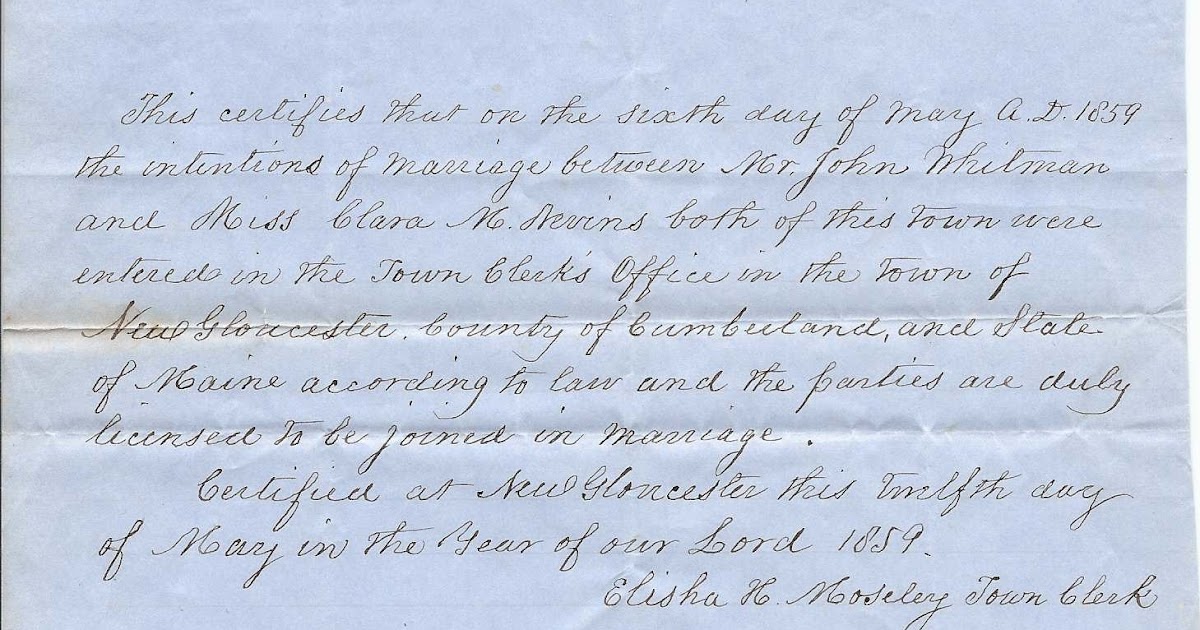 This certifies that on the sixth day of May A.D. 1859
the intentions of marriage between Mr. John Whitman
and Miss Clara M. Nevins both of this town were
entered in the Town Clerk's Office in the town of
New Gloucester. County of Cumberland, and State
of Maine according to law and the parties are duly
licensed to be joined in marriage.
Certified at New Gloucester this twelfth day
of May in the Year of our Lord 1859.
Elisha H. Moseley Town Clerk